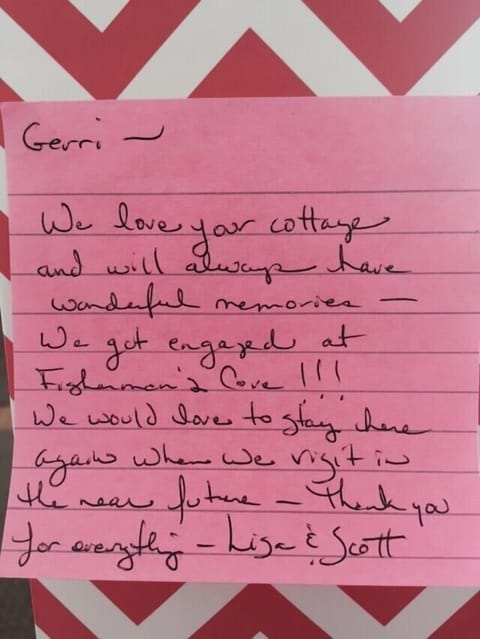 Gerri ~
We love your cottage
and will always have
wonderful memories —
We got engaged at
Fisherman's Cove !!!
We would love to stay here
again when we visit in
the near future – Thank you
for everything – Lisa & Scott